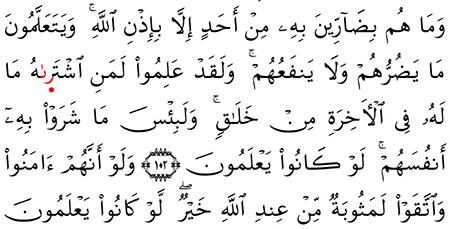 وَمَا هُم بِضَآرِّينَ بِهِۦ مِنْ أَحَدٍ إِلَّا بِإِذْنِ ٱللَّهِ ۚ وَيَتَعَلَّمُونَ
مَا يَضُرُّهُمْ وَلَا يَنفَعُهُمْ ۚ وَلَقَدْ عَلِمُوا۟ لَمَنِ ٱشْتَرَىٰهُ مَا
لَهُۥ فِى ٱلْـَٔاخِرَةِ مِنْ خَلَـٰقٍ ۚ وَلَبِئْسَ مَا شَرَوْا۟ بِهِۦٓ
أَنفُسَهُمْ ۚ لَوْ كَانُوا۟ يَعْلَمُونَ ﴿١٠٢﴾ وَلَوْ أَنَّهُمْ ءَامَنُوا۟
وَٱتَّقَوْا۟ لَمَثُوبَةٌ مِّنْ عِندِ ٱللَّهِ خَيْرٌ ۖ لَّوْ كَانُوا۟ يَعْلَمُونَ